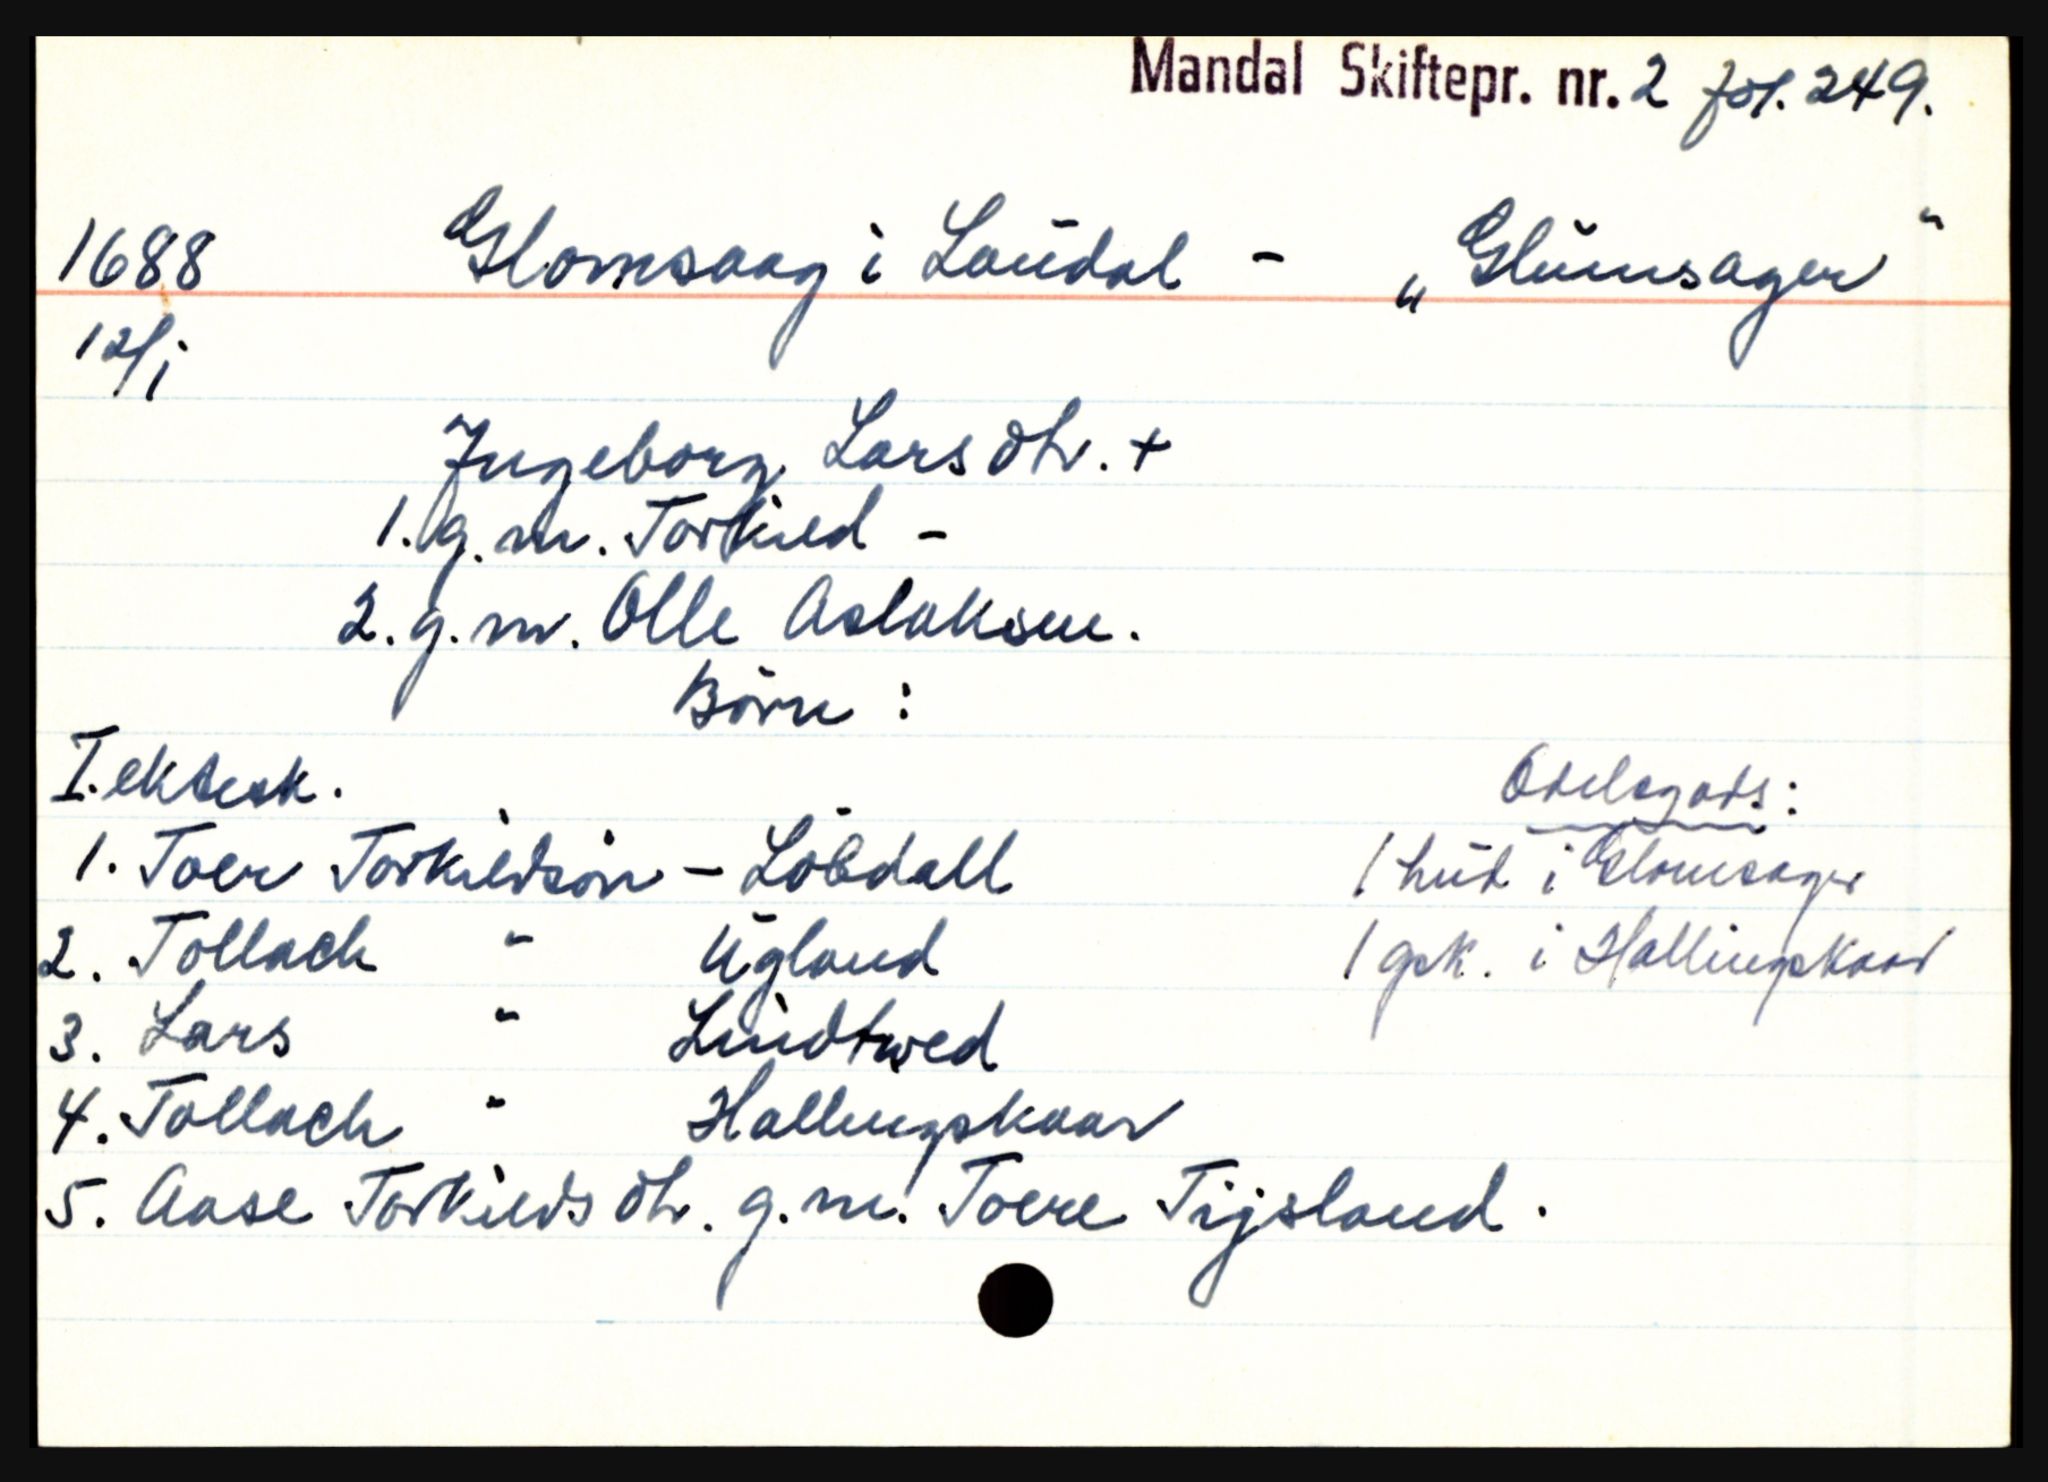 Mandal Skiftepr. nr. 2 fol. 249.
1688 Glomsaag i Laudal - „Glumsager"
12/1
Ingeborg Larsdtr. +
1. g.m. Torkild -
2. g.m. Olle Aslaksen.
Børn :
I. ektesk.
Odelsgods :
1. Toer Torkildsøn - Løbdall
1 hud i Glomsager
2. Tollach " Ugland
1 gsk. i Hallingskaar
3. Lars " Lindtwed
4. Tollach " Hallingskaar
5. Aase Torkildsdtr. g.m. Toere Tijsland.